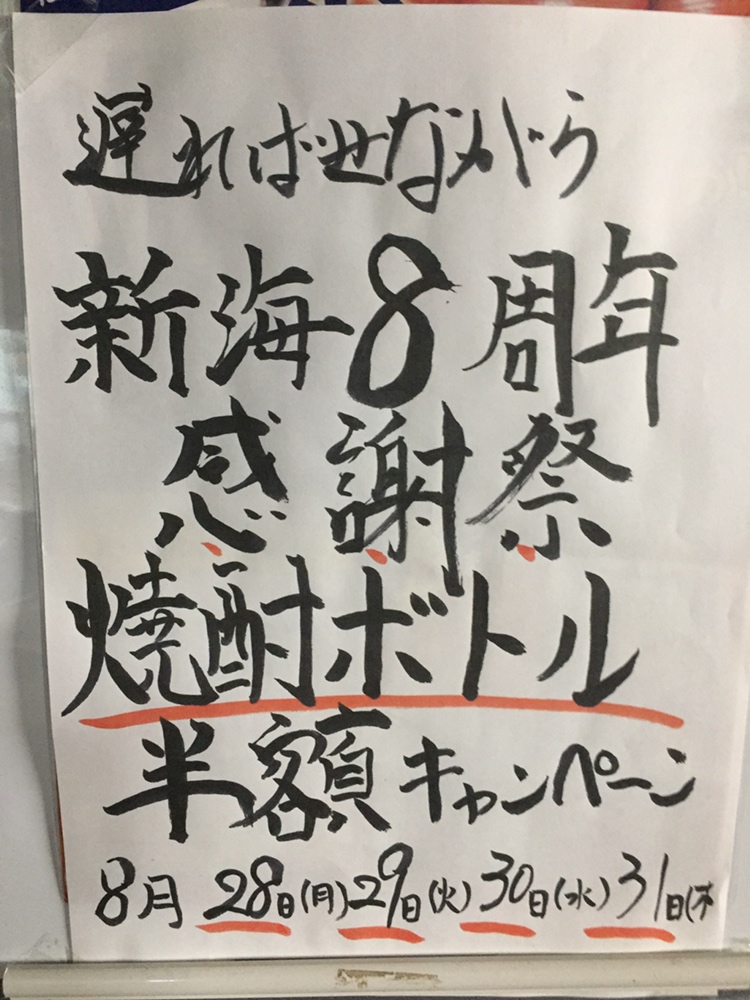 遅ればせながら
新海8周年
感謝祭
焼酎ボトル
半額キャンペーン
8月 28日(月) 29日(火) 30日(水) 31日(木